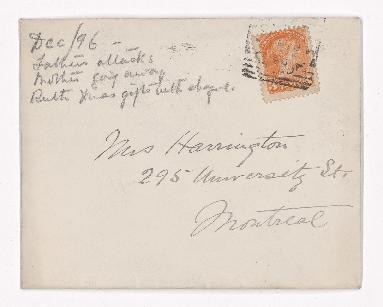 Dec/96 -
Father's attacks
Mother going away
Ruth Xmas gifts with cheque.
Mrs Harrington
295 University St.
Montreal